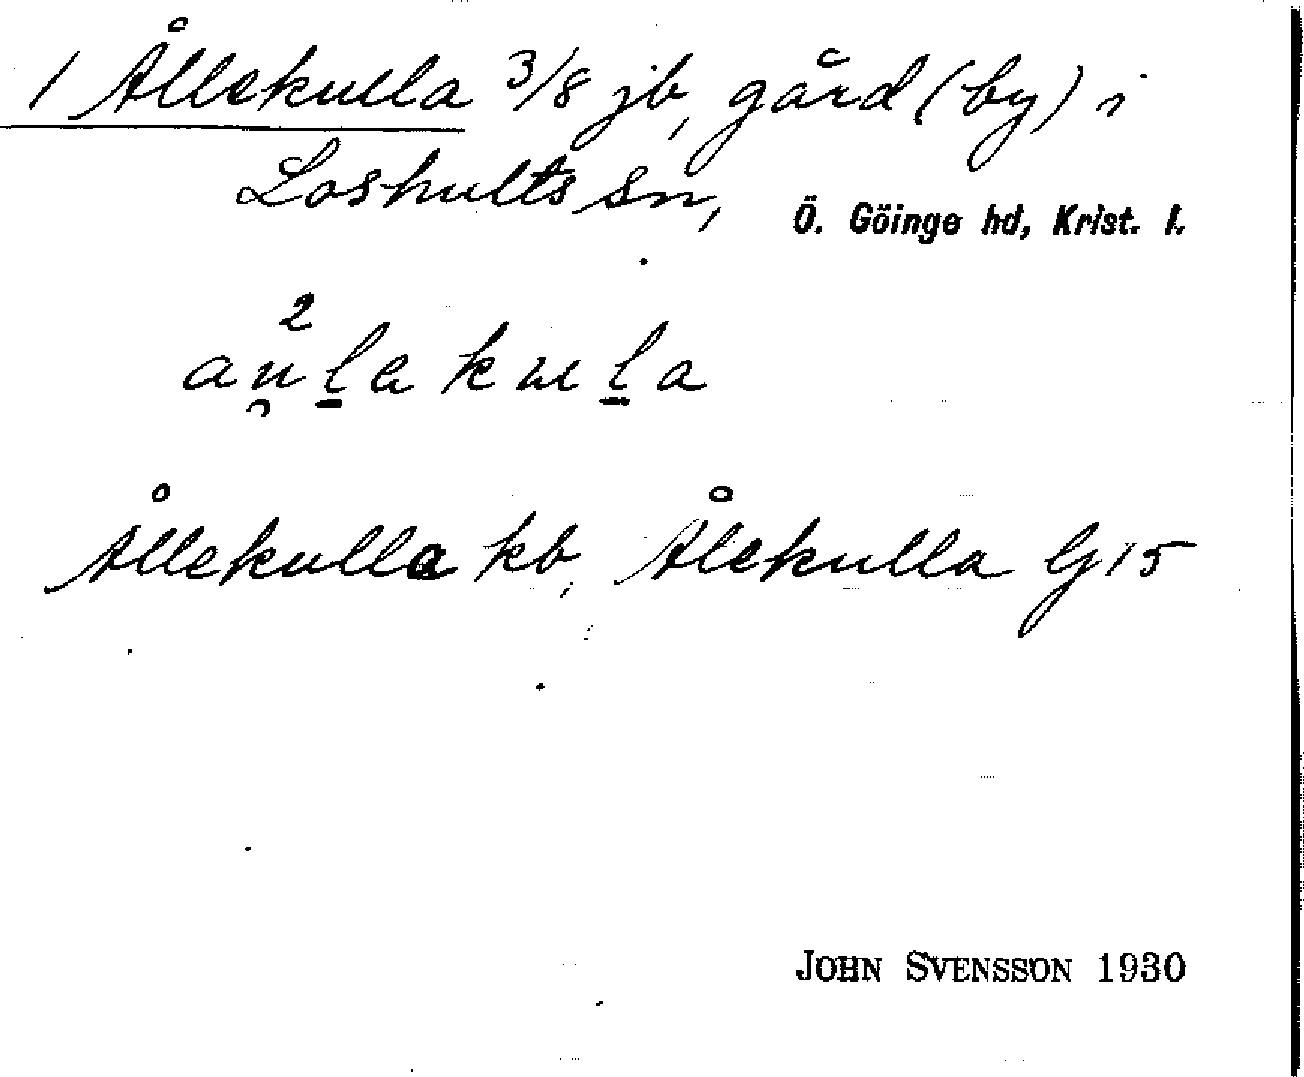 1 Ållekulla 3/8 jb, gård (by) i
Loshults sn, Ö. Göinge hd, Krist. l.
2
au̯l̲akul̲a
Ållekulla kb, Ålekulla G15
JOHN SVENSSON 1930